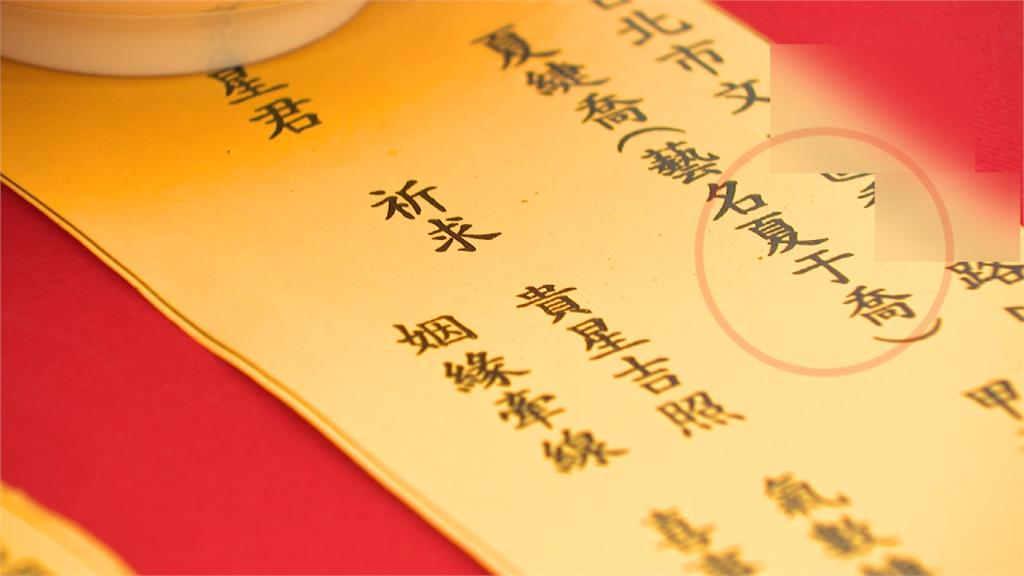 北市文路
夏緁喬(藝名夏于喬) 甲
貴星吉照 氣數
祈求
姻緣牽線 喜事
星君